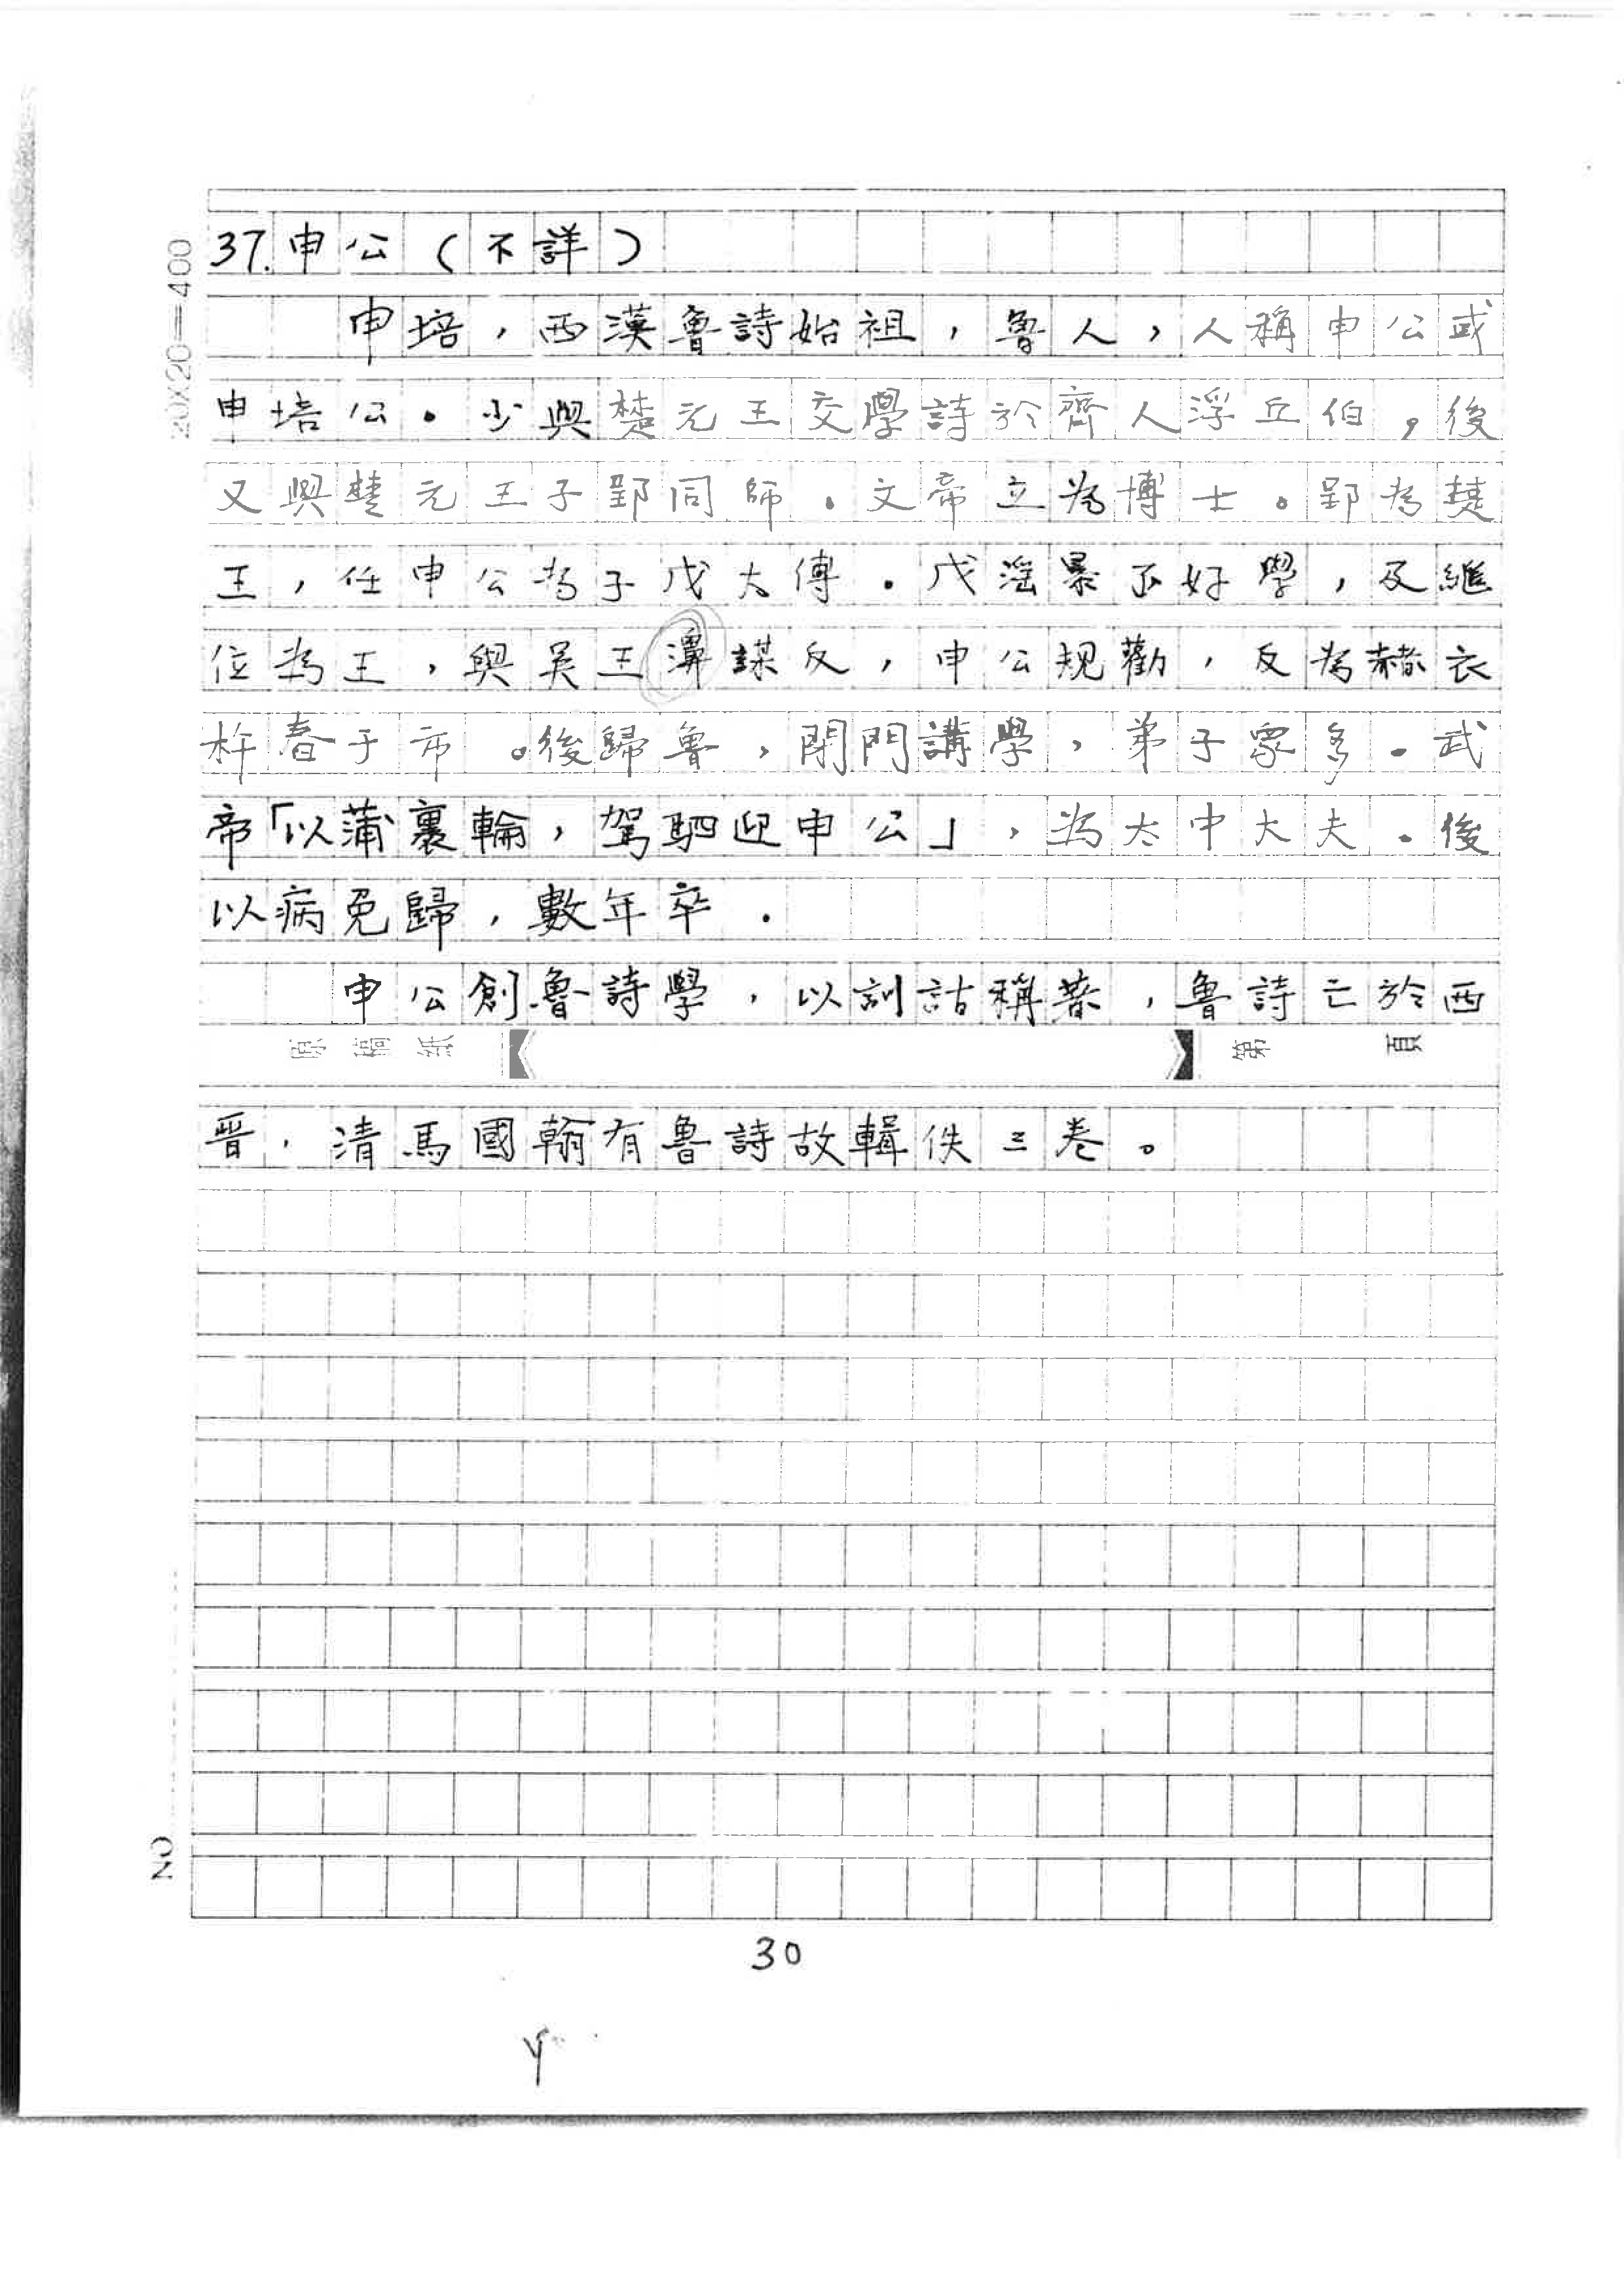 37.申公(不詳)
申培,西漢魯詩始祖,魯人,人稱申公或
申培公。少與楚元王交學詩於齊人浮丘伯,後
又與楚元王子郢同師。文帝立為博士。郢為楚
王,任申公為子戊太傅。戊淫暴不好學,及繼
位為王,與吳王濞謀反,申公規勸,反為赭衣
杵舂于市。後歸魯,閉門講學,弟子眾多。武
帝「以蒲裹輪,駕駟迎申公」,為太中大夫。後
以病免歸,數年卒.
申公創魯詩學,以訓詁稱著,魯詩亡於西
原稿紙 第 頁
晉,清馬國翰有魯詩故輯佚三卷。
20X20=400
30